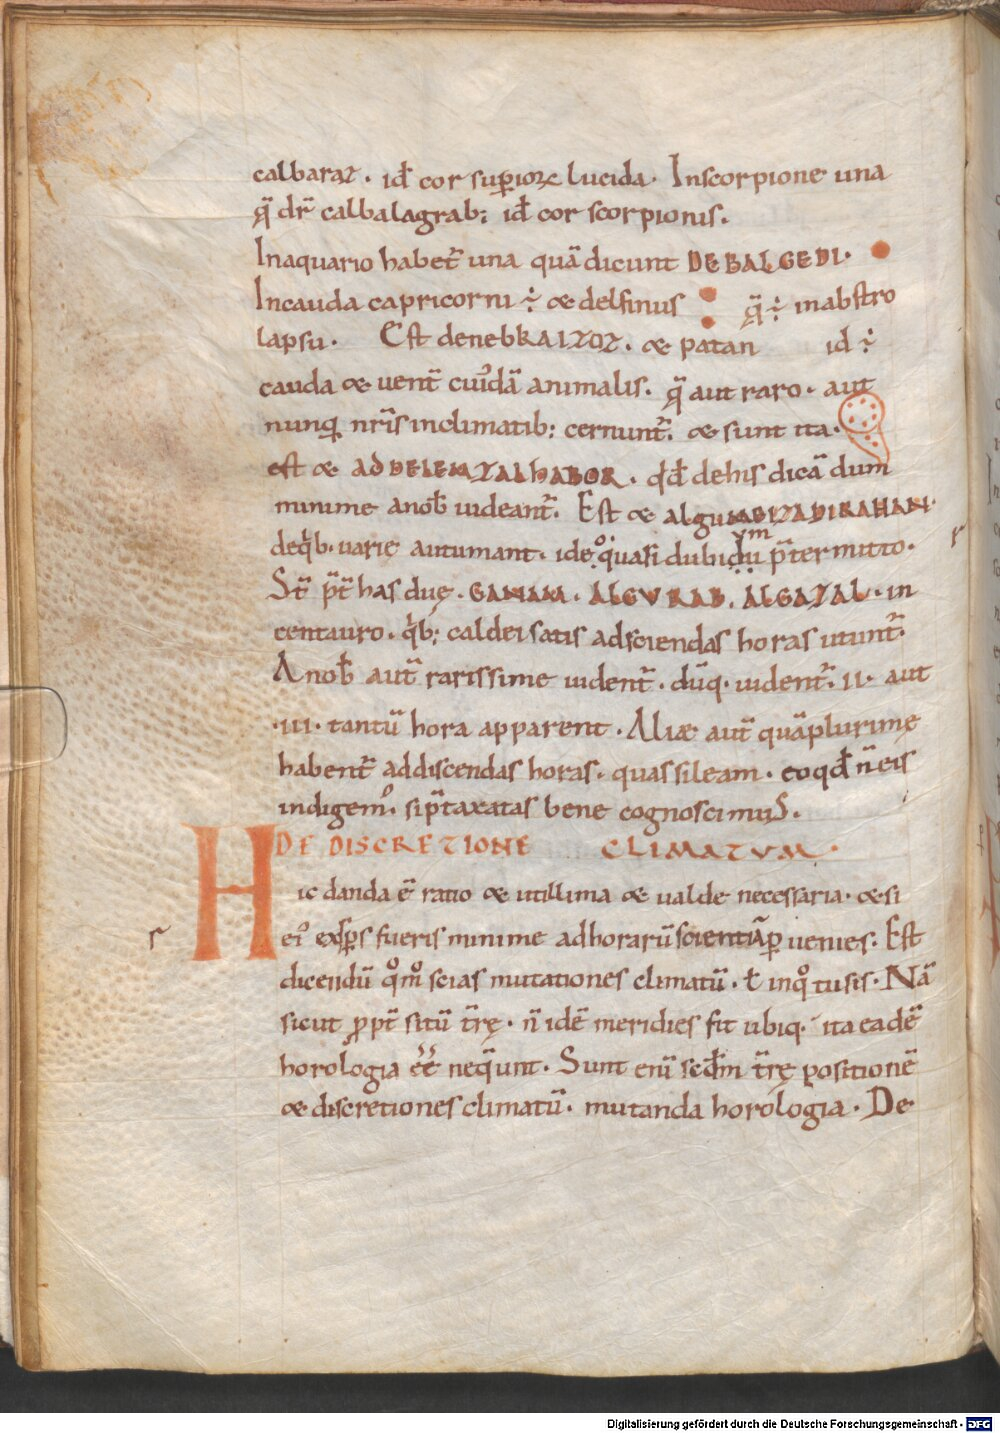 calbaraz . id̄ cor superiore lucida . In scorpione una
q̄ dr̄ calbalagrab; id̄ cor scorpionis.
In aquario habet̄ una quā dicunt DEBALGEDI.
In cauda capricorni ÷ & delfinus q̄ ÷ in abstro
lapsu. Est denebKAIZOZ. & patan id ÷
cauda & uent̄ cuiusdā animalis. q̄ aut raro . aut
nunq̄ nr̄is in climatib; cernunt̄. & sunt ita.
est & ADDELEMZALHABOR . qd̄ de his dicā dum
minime a nob̄ uideant̄. Est &
de qb; uarie autumant . ideo quasi dubium p̄termitto.
St̄ p̄t has duę . GANAM . ALGURAB . ALGAZAL . in
centauro . qb; caldei satis ad sciendas horas utunt̄.
A nob̄ aut̄ rarissime uident̄ . dūq; uident̄ . II . aut
.III. tantū hora apparent . Aliæ aut̄ quā plurimę
habent̄ ad discendas horas . quas sileam . eo qd̄ n̄ eis
indigem; si p̄taxatas bene cognoscimus.
DE DISCRETIONE CLIMATUM.
Hic danda ē ratio & utillima & ualde necessaria . & si
ei; expers fueris minime ad horarū scientiā peruenies. Est
dicendū quomo scias mutationes climatū . ł in quo tu sis . Nā
sicut ppt̄ sitū tr̄ę . n̄ idē meridies fit ubiq; ita eadē
horologia ēē nequeunt. Sunt eni scd̄m tr̄ę positionē
& discretiones climatū . mutanda horologia . De
Digitalisierung gefördert durch die Deutsche Forschungsgemeinschaft - DFG